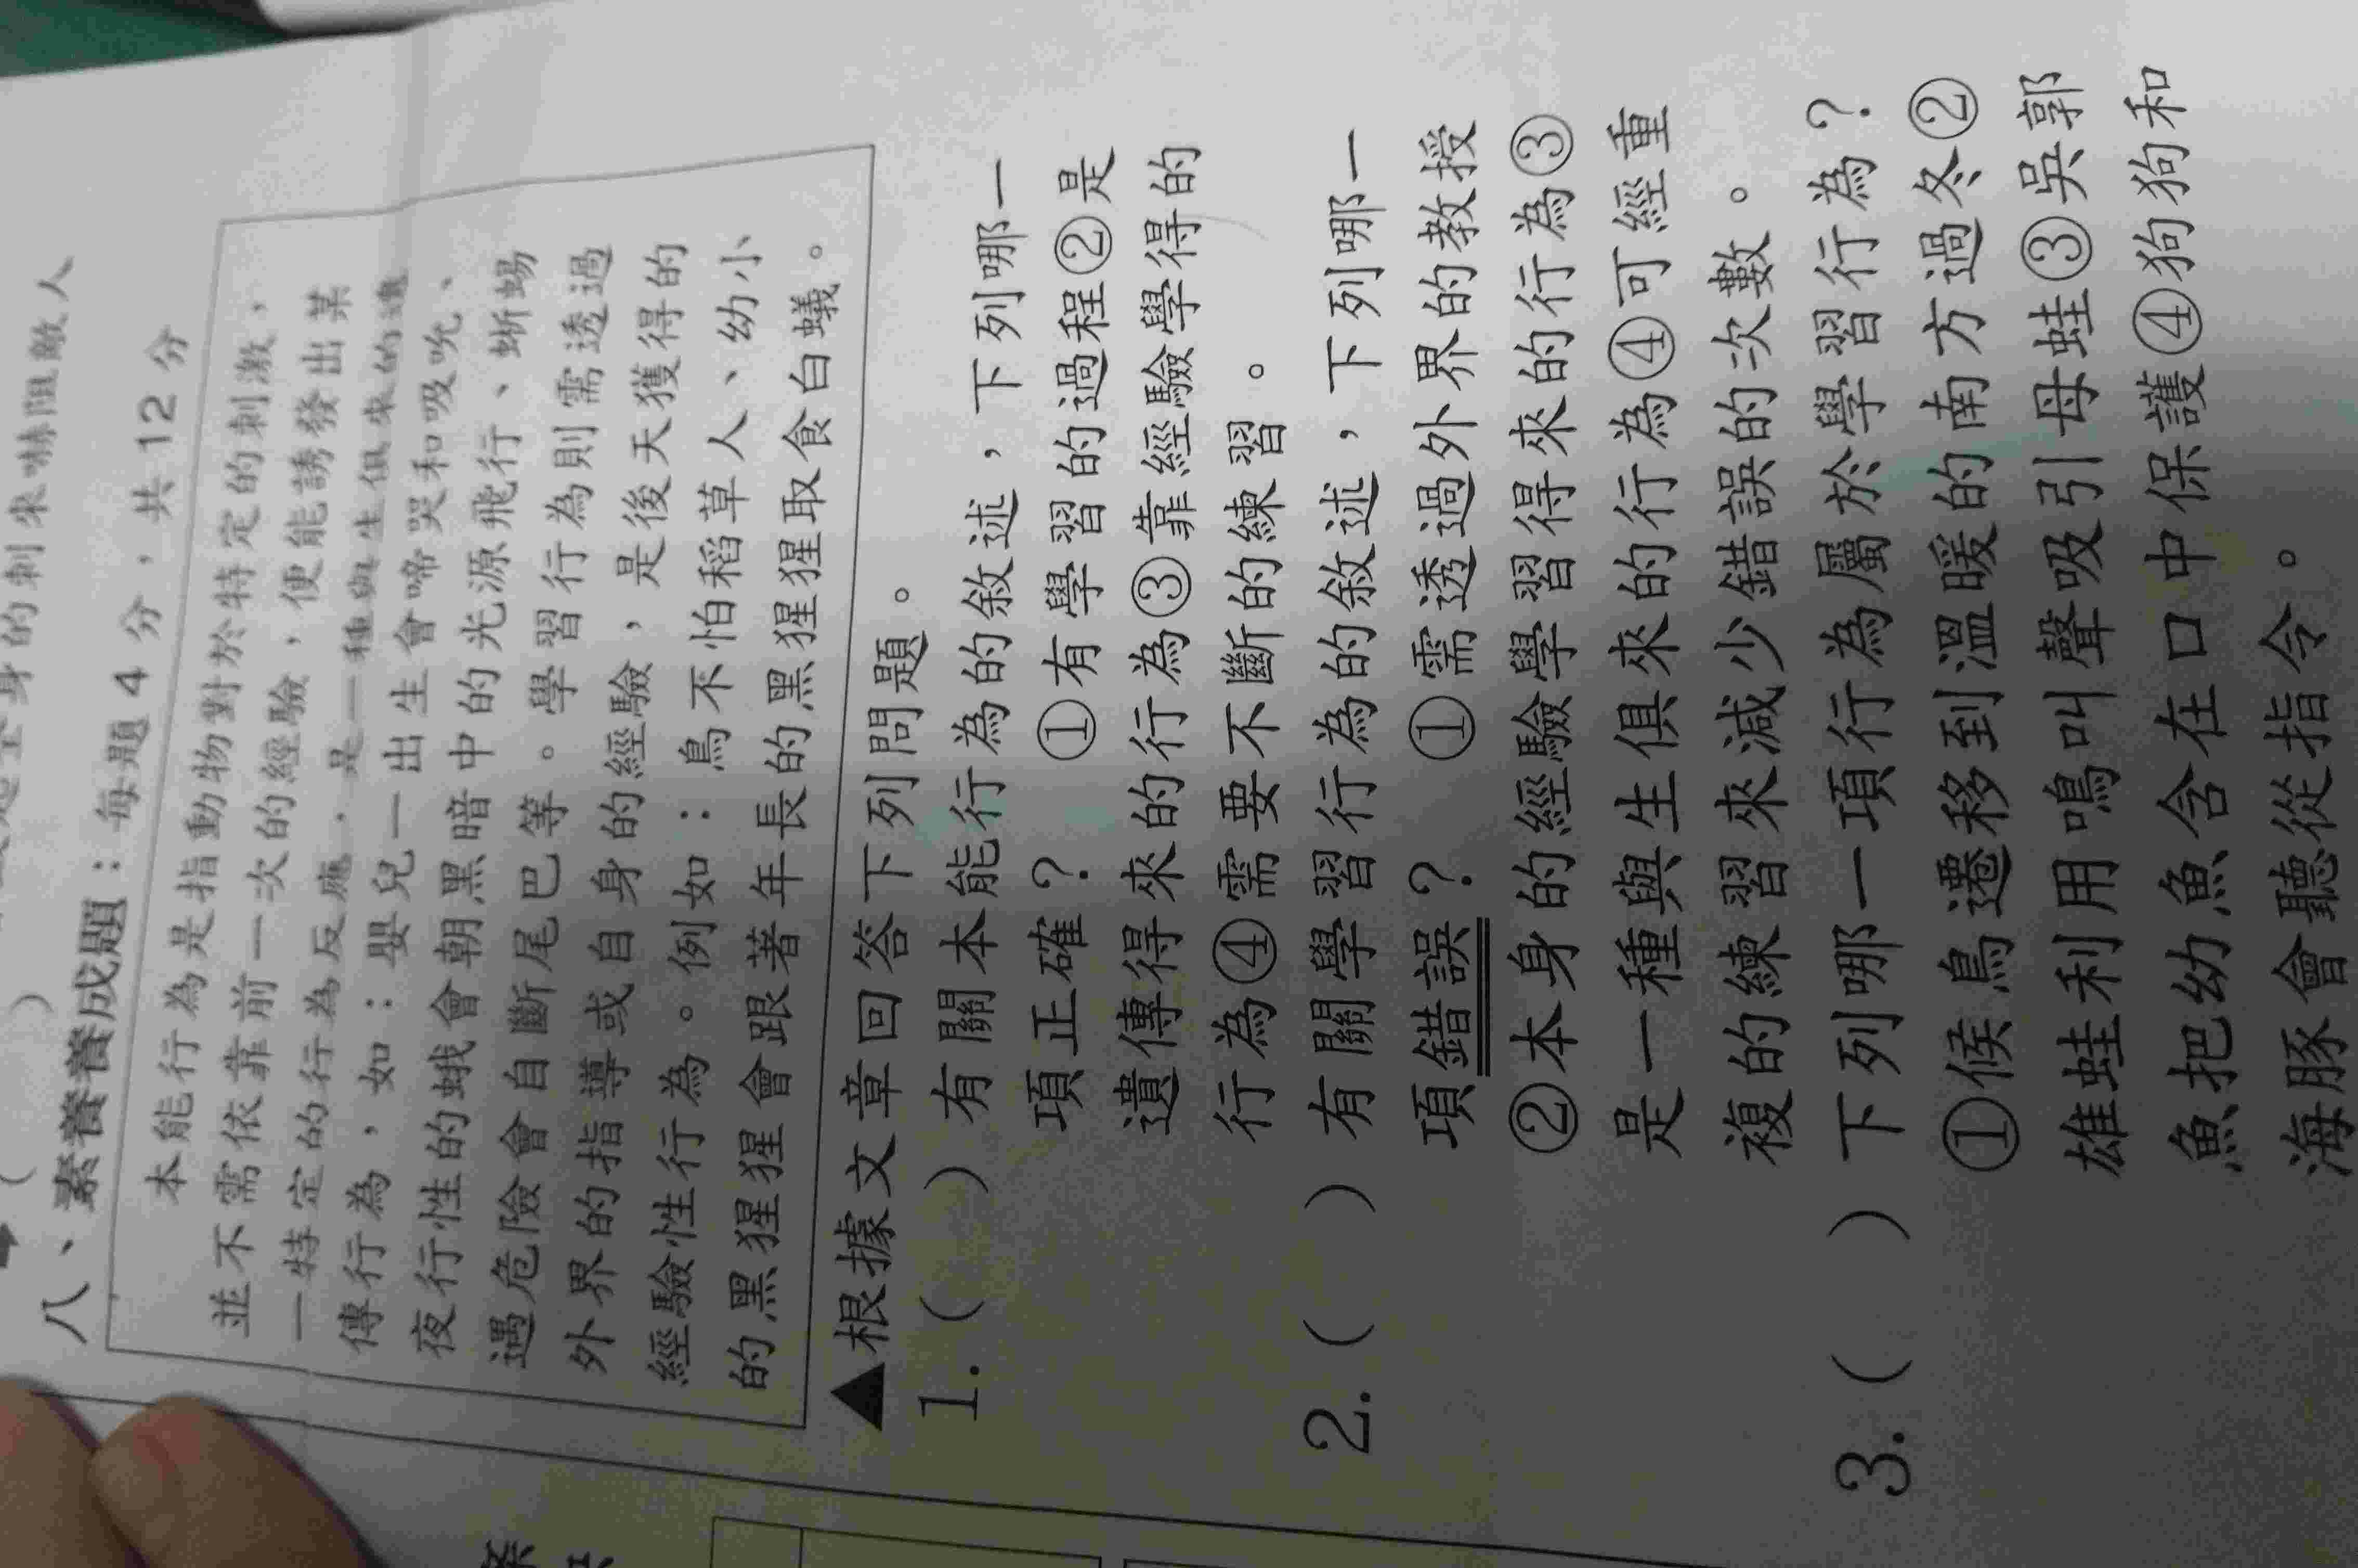 身的刺來嚇阻敵人
(　)
八、素養養成題：每題 4 分，共 12 分
本能行為是指動物對於特定的刺激，
並不需依靠前一次的經驗，便能誘發出某
一特定的行為反應，是一種與生俱來的遺
傳行為，如：嬰兒一出生會啼哭和吸吮、
夜行性的蛾會朝黑暗中的光源飛行、蜥蜴
遇危險會自斷尾巴等。學習行為則需透過
外界的指導或自身的經驗，是後天獲得的
經驗性行為。例如：鳥不怕稻草人、幼小
的黑猩猩會跟著年長的黑猩猩取食白蟻。
▲根據文章回答下列問題。
1.(　)有關本能行為的敘述，下列哪一
項正確？　①有學習的過程②是
遺傳得來的行為③靠經驗學得的
行為④需要不斷的練習。
2.(　)有關學習行為的敘述，下列哪一
項錯誤？　①需透過外界的教授
②本身的經驗學習得來的行為③
是一種與生俱來的行為④可經重
複的練習來減少錯誤的次數。
3.(　)下列哪一項行為屬於學習行為？
①候鳥遷移到溫暖的南方過冬②
雄蛙利用鳴叫聲吸引母蛙③吳郭
魚把幼魚含在口中保護④狗狗和
海豚會聽從指令。